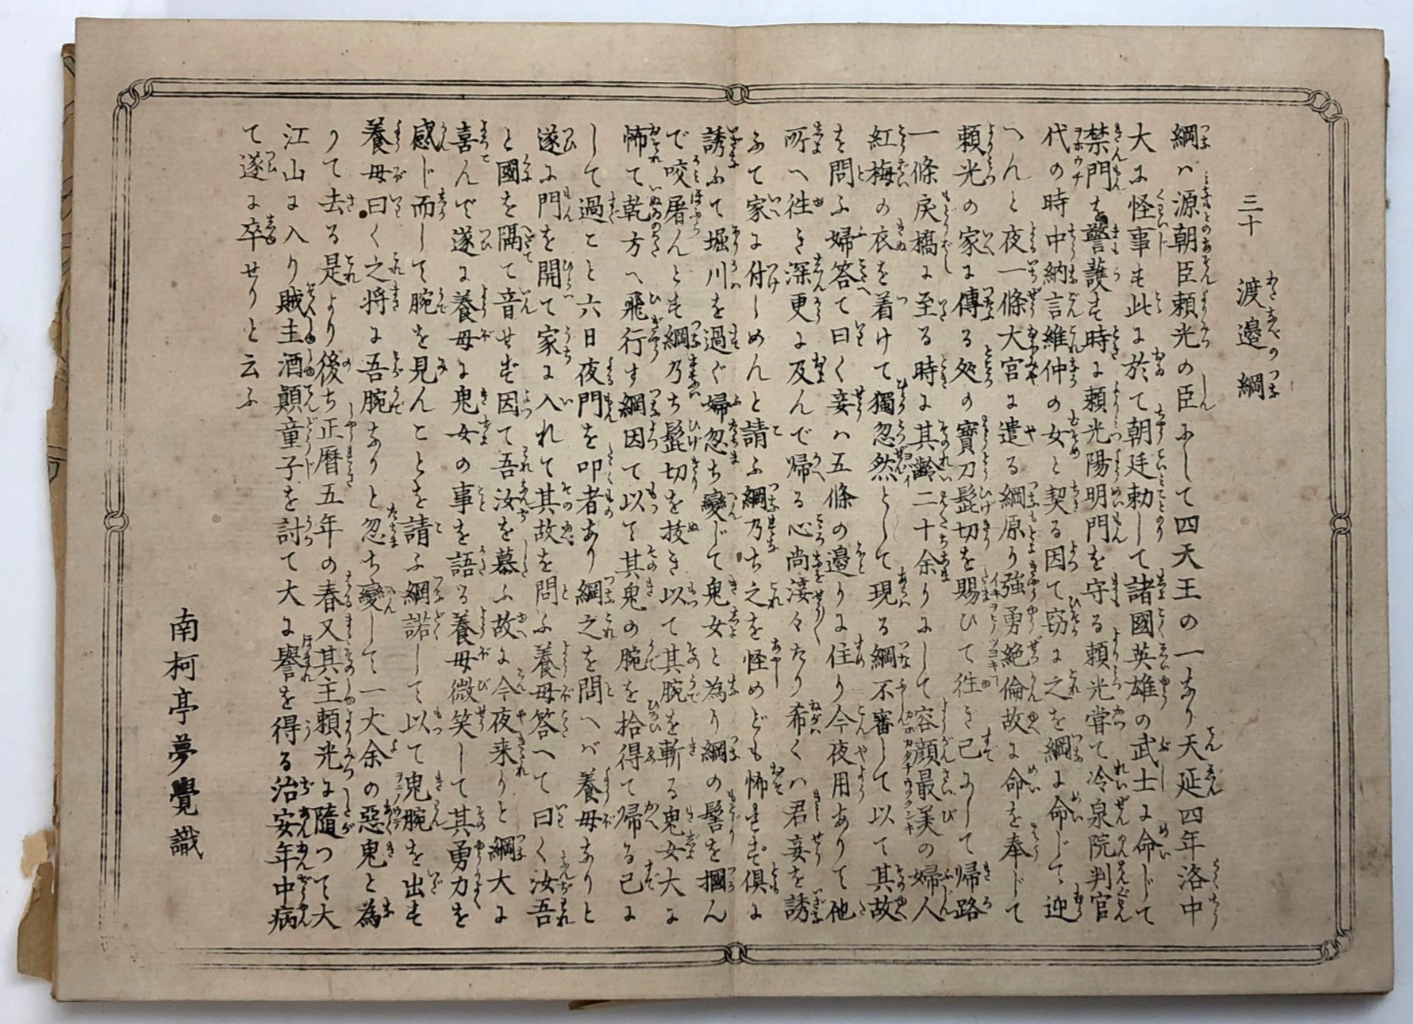 三十　渡邉　綱
綱ハ源朝臣頼光の臣ふして四天王の一あり天延四年洛中
大に怪事も此に於て朝廷勅して諸國英雄の武士に命じて
禁門を警護も時に頼光陽明門を守る頼光甞て冷泉院判官
代の時中納言維仲の女と契る因て窃に之を綱に命じて迎
へんと夜一條大宮に遣る綱原り強勇絶倫故に命を奉じて
頼光の家に傳る処の寶刀髭切を賜ひて往き己ふして帰路
一條戻橋に至る時に其齢二十余りふして容顔最美の婦人
紅梅の衣を着けて獨忽然として現る綱不審して以て其故
を問ふ婦答て曰く妾ハ五條の邉りに住り今夜用ありて他
所へ往き深更に及んで帰る心尚淒々たり希くハ君妾を誘
ふて家に付しめんと請ふ綱乃ち之を怪めども怖れず倶に
誘ふて堀川を過ぐ婦忽ち變じて鬼女と為り綱の髻を摑ん
で咬屠んとも綱乃ち髭切を抜き以て其腕を斬る鬼女大に
怖て乾方へ飛行す綱因て以て其鬼の腕を拾得て帰る己に
して過こと六日夜門を叩者あり綱之を問へバ養母ありと
遂に門を開て家に入れて其故を問ふ養母答へて曰く汝吾
と國を隔て音せず因て吾汝を慕ふ故に今夜来りと綱大に
喜んで遂に養母に鬼女の事を語る養母微笑して其勇力を
感じ而して腕を見んことを請ふ綱諾して以て鬼腕を出も
養母曰く之将に吾腕ありと忽ち變して一大余の惡鬼と為
りて去る是より後ち正暦五年の春又其主頼光に隨つて大
江山に入り賊主酒顛童子を討て大に譽を得る治安年中病
て遂に卒せりと云ふ
南柯亭夢覺識